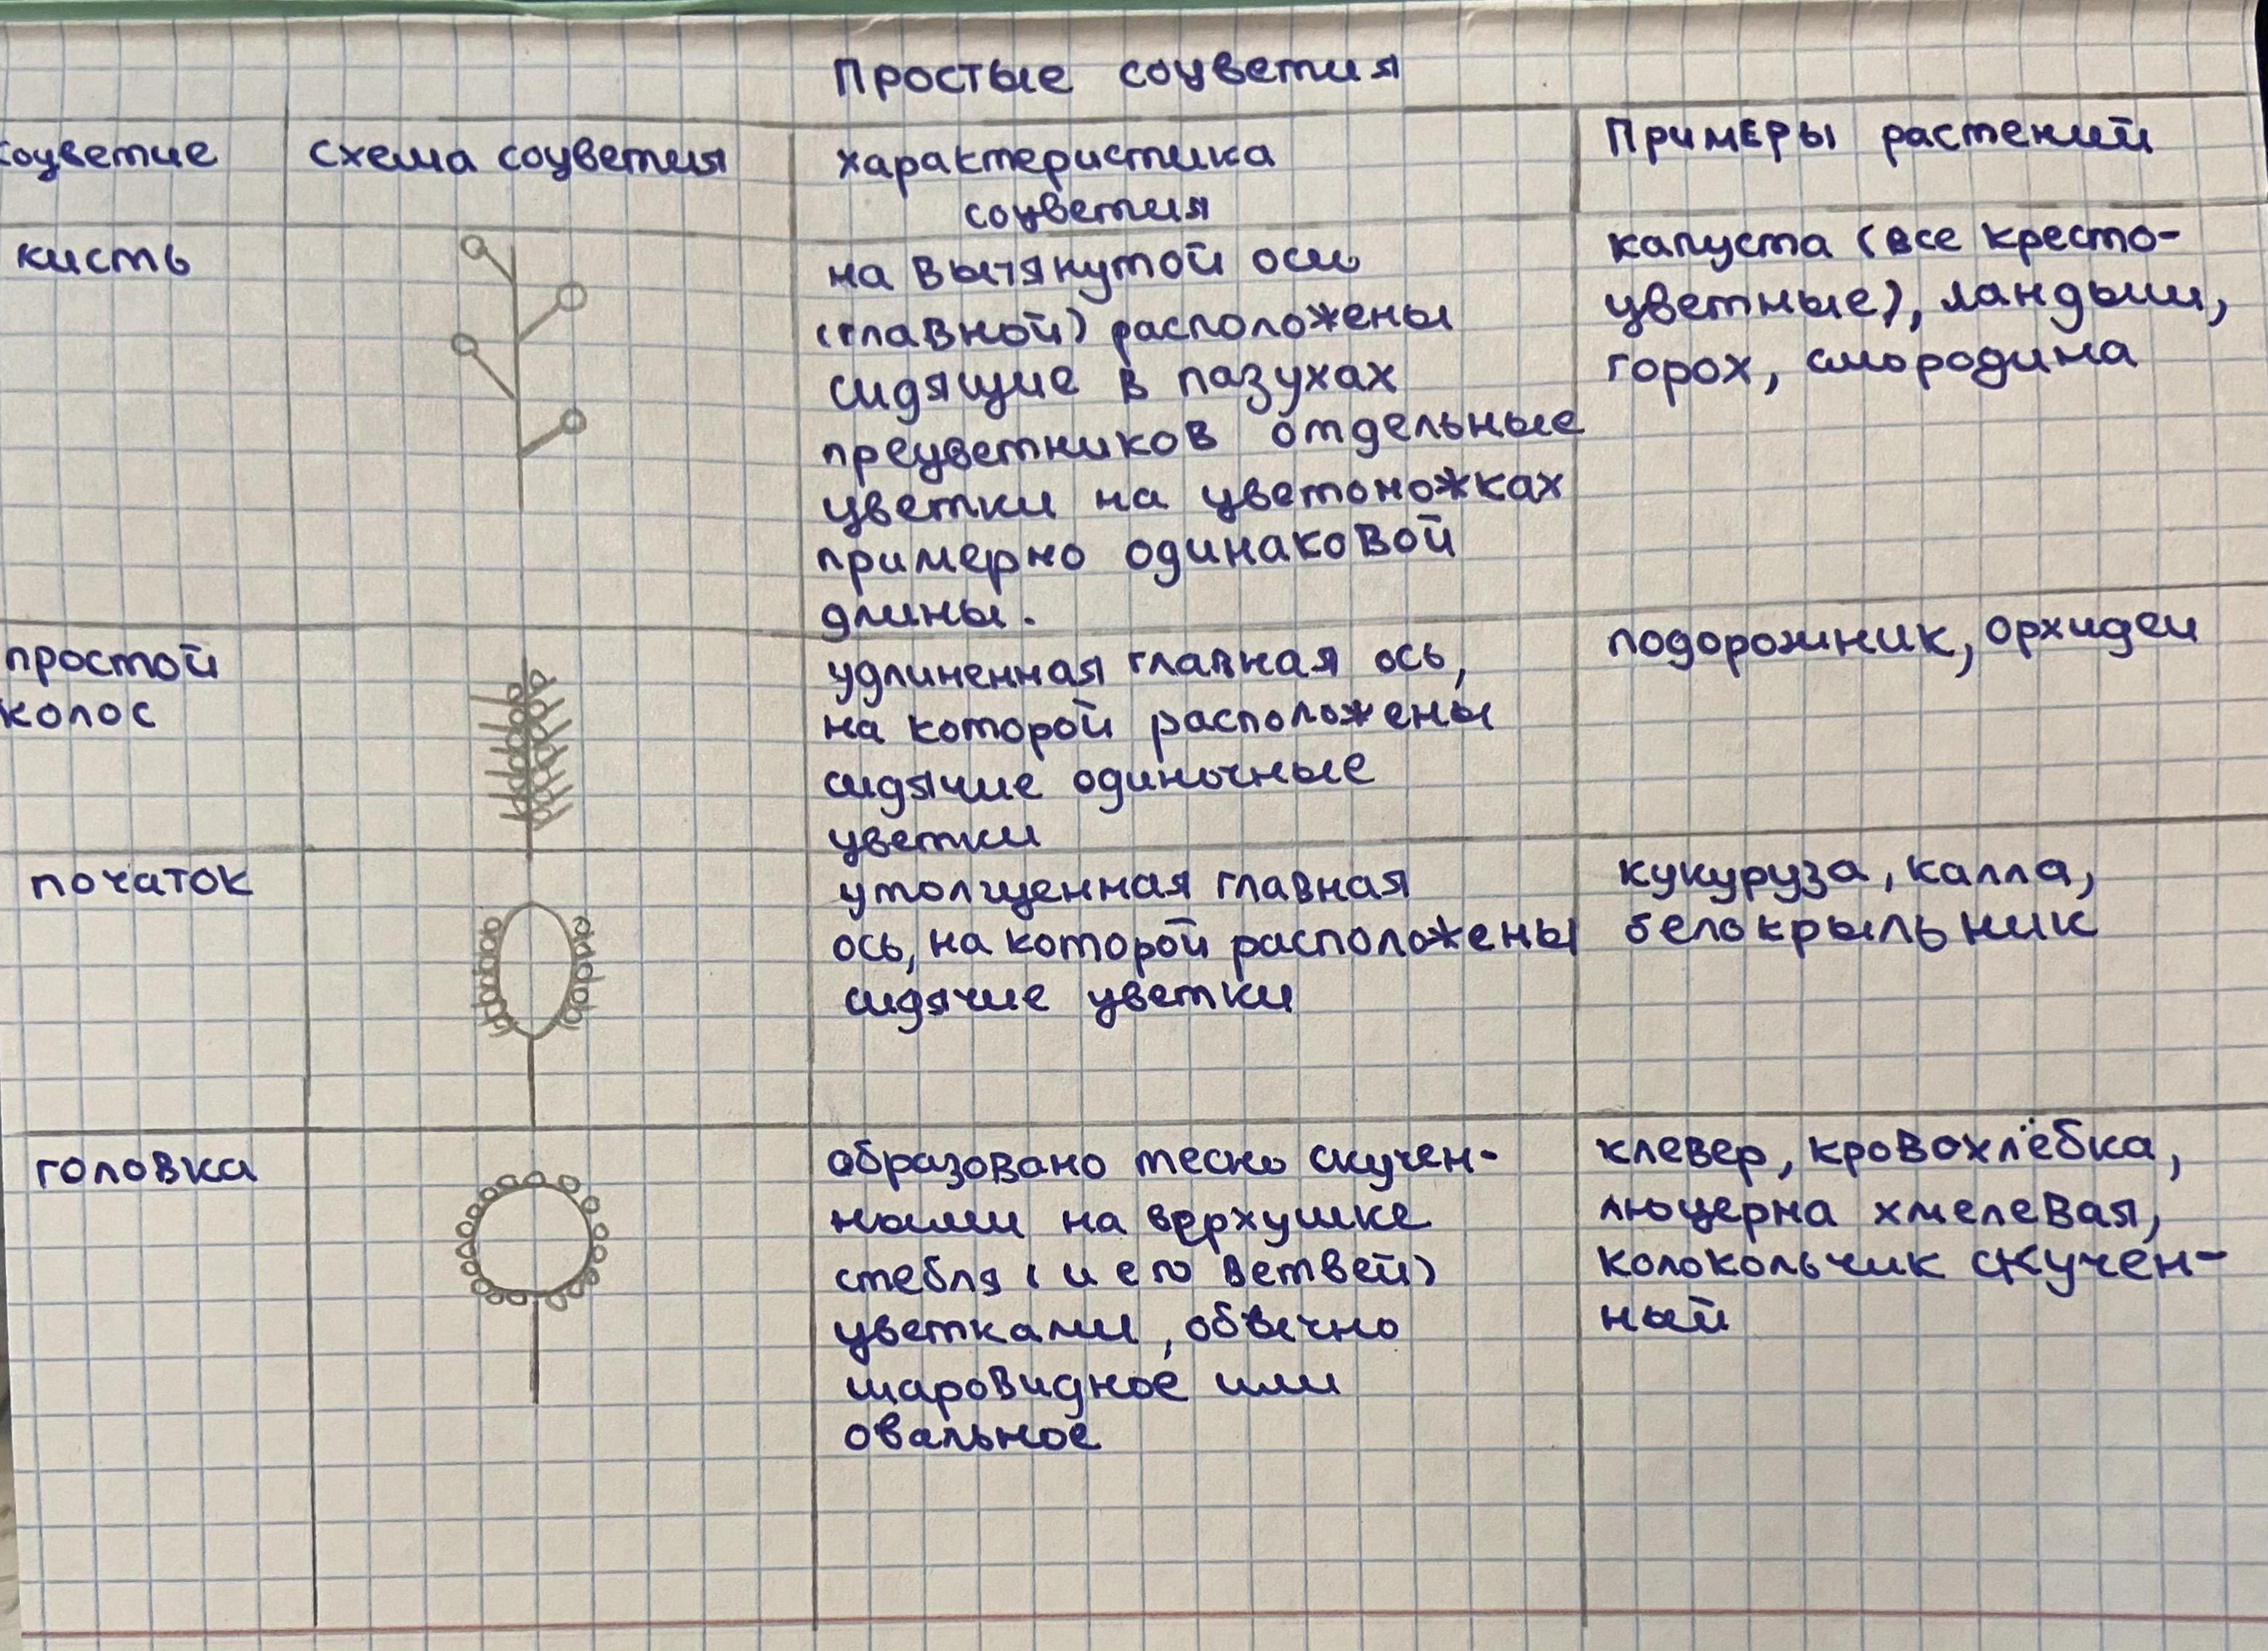 Простые соцветия
соцветие схема соцветия характеристика соцветия Примеры растений
кисть
на вытянутой оси
(главной) расположены
сидящие в пазухах
прецветников отдельные
цветки на цветоножках
примерно одинаковой
длины.
капуста (все кресто-
цветные), ландыш,
горох, смородина
простой
колос
удлиненная главная ось,
на которой расположены
сидячие одиночные
цветки
подорожник, орхидеи
початок
утолщенная главная
ось, на которой расположены
сидячие цветки
кукуруза, калла,
белокрыльник
головка
образовано тесно скучен-
ными на верхушке
стебля (и его ветвей)
цветками, обычно
шаровидное или
овальное
клевер, кровохлёбка,
люцерна хмелевая,
колокольчик скучен-
ный